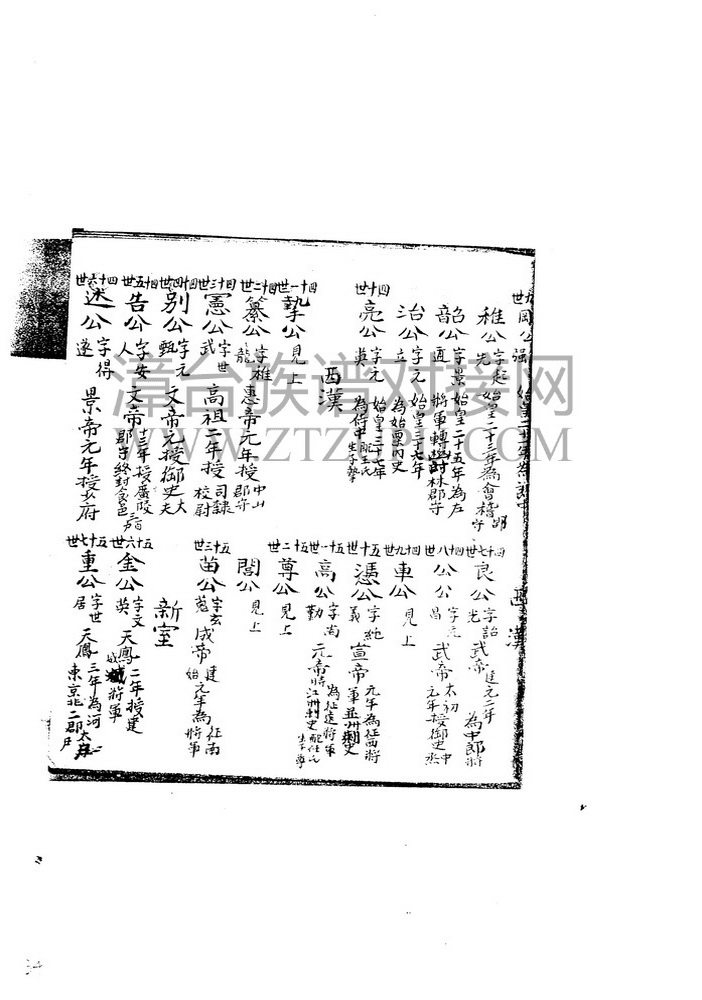 岡公 強
稚公 字起光 始皇二十三年為會稽郡守
韶公 字景 始皇二十五年為左將軍轉 林郡守
治公 字元立 始皇三十七年為始皇內史
亮公 字元英 始皇三十七年為侍中配王氏生子摯
西漢
四十一世 摯公 見上
四十二世 纂公 字雅龍 惠帝元年授中山郡守
四十三世 憲公 字世武 高祖二年授司隸校尉
四十四世 別公 字元甄 文帝元授御史大夫
四十五世 告公 字安人 文帝十三年授廣陵郡守終封食邑三百
四十六世 述公 字得遂 景帝元年授少府
漢
四十七世 良公 字詒光 武帝建元二年為中郎將
四十八世 公公 字元昌 武帝太初元年授御史中丞
四十九世 車公 見上
五十世 憑公 字純義 宣帝元年為征西將軍並州刺史
五十一世 高公 字尚勤 元帝時為征遠將軍江州刺史配任氏生子尊
五十二世 尊公 見上
閭公 見上
五十三世 苗公 字玄蒐 成帝建始元年為征南將軍
新室
五十六世 金公 字文英 天鳳二年授建威將軍
五十七世 重公 字世居 天鳳三年為河東京北二郡太守
漳台族谱对接网
WWW.ZTZUPU.COM
34